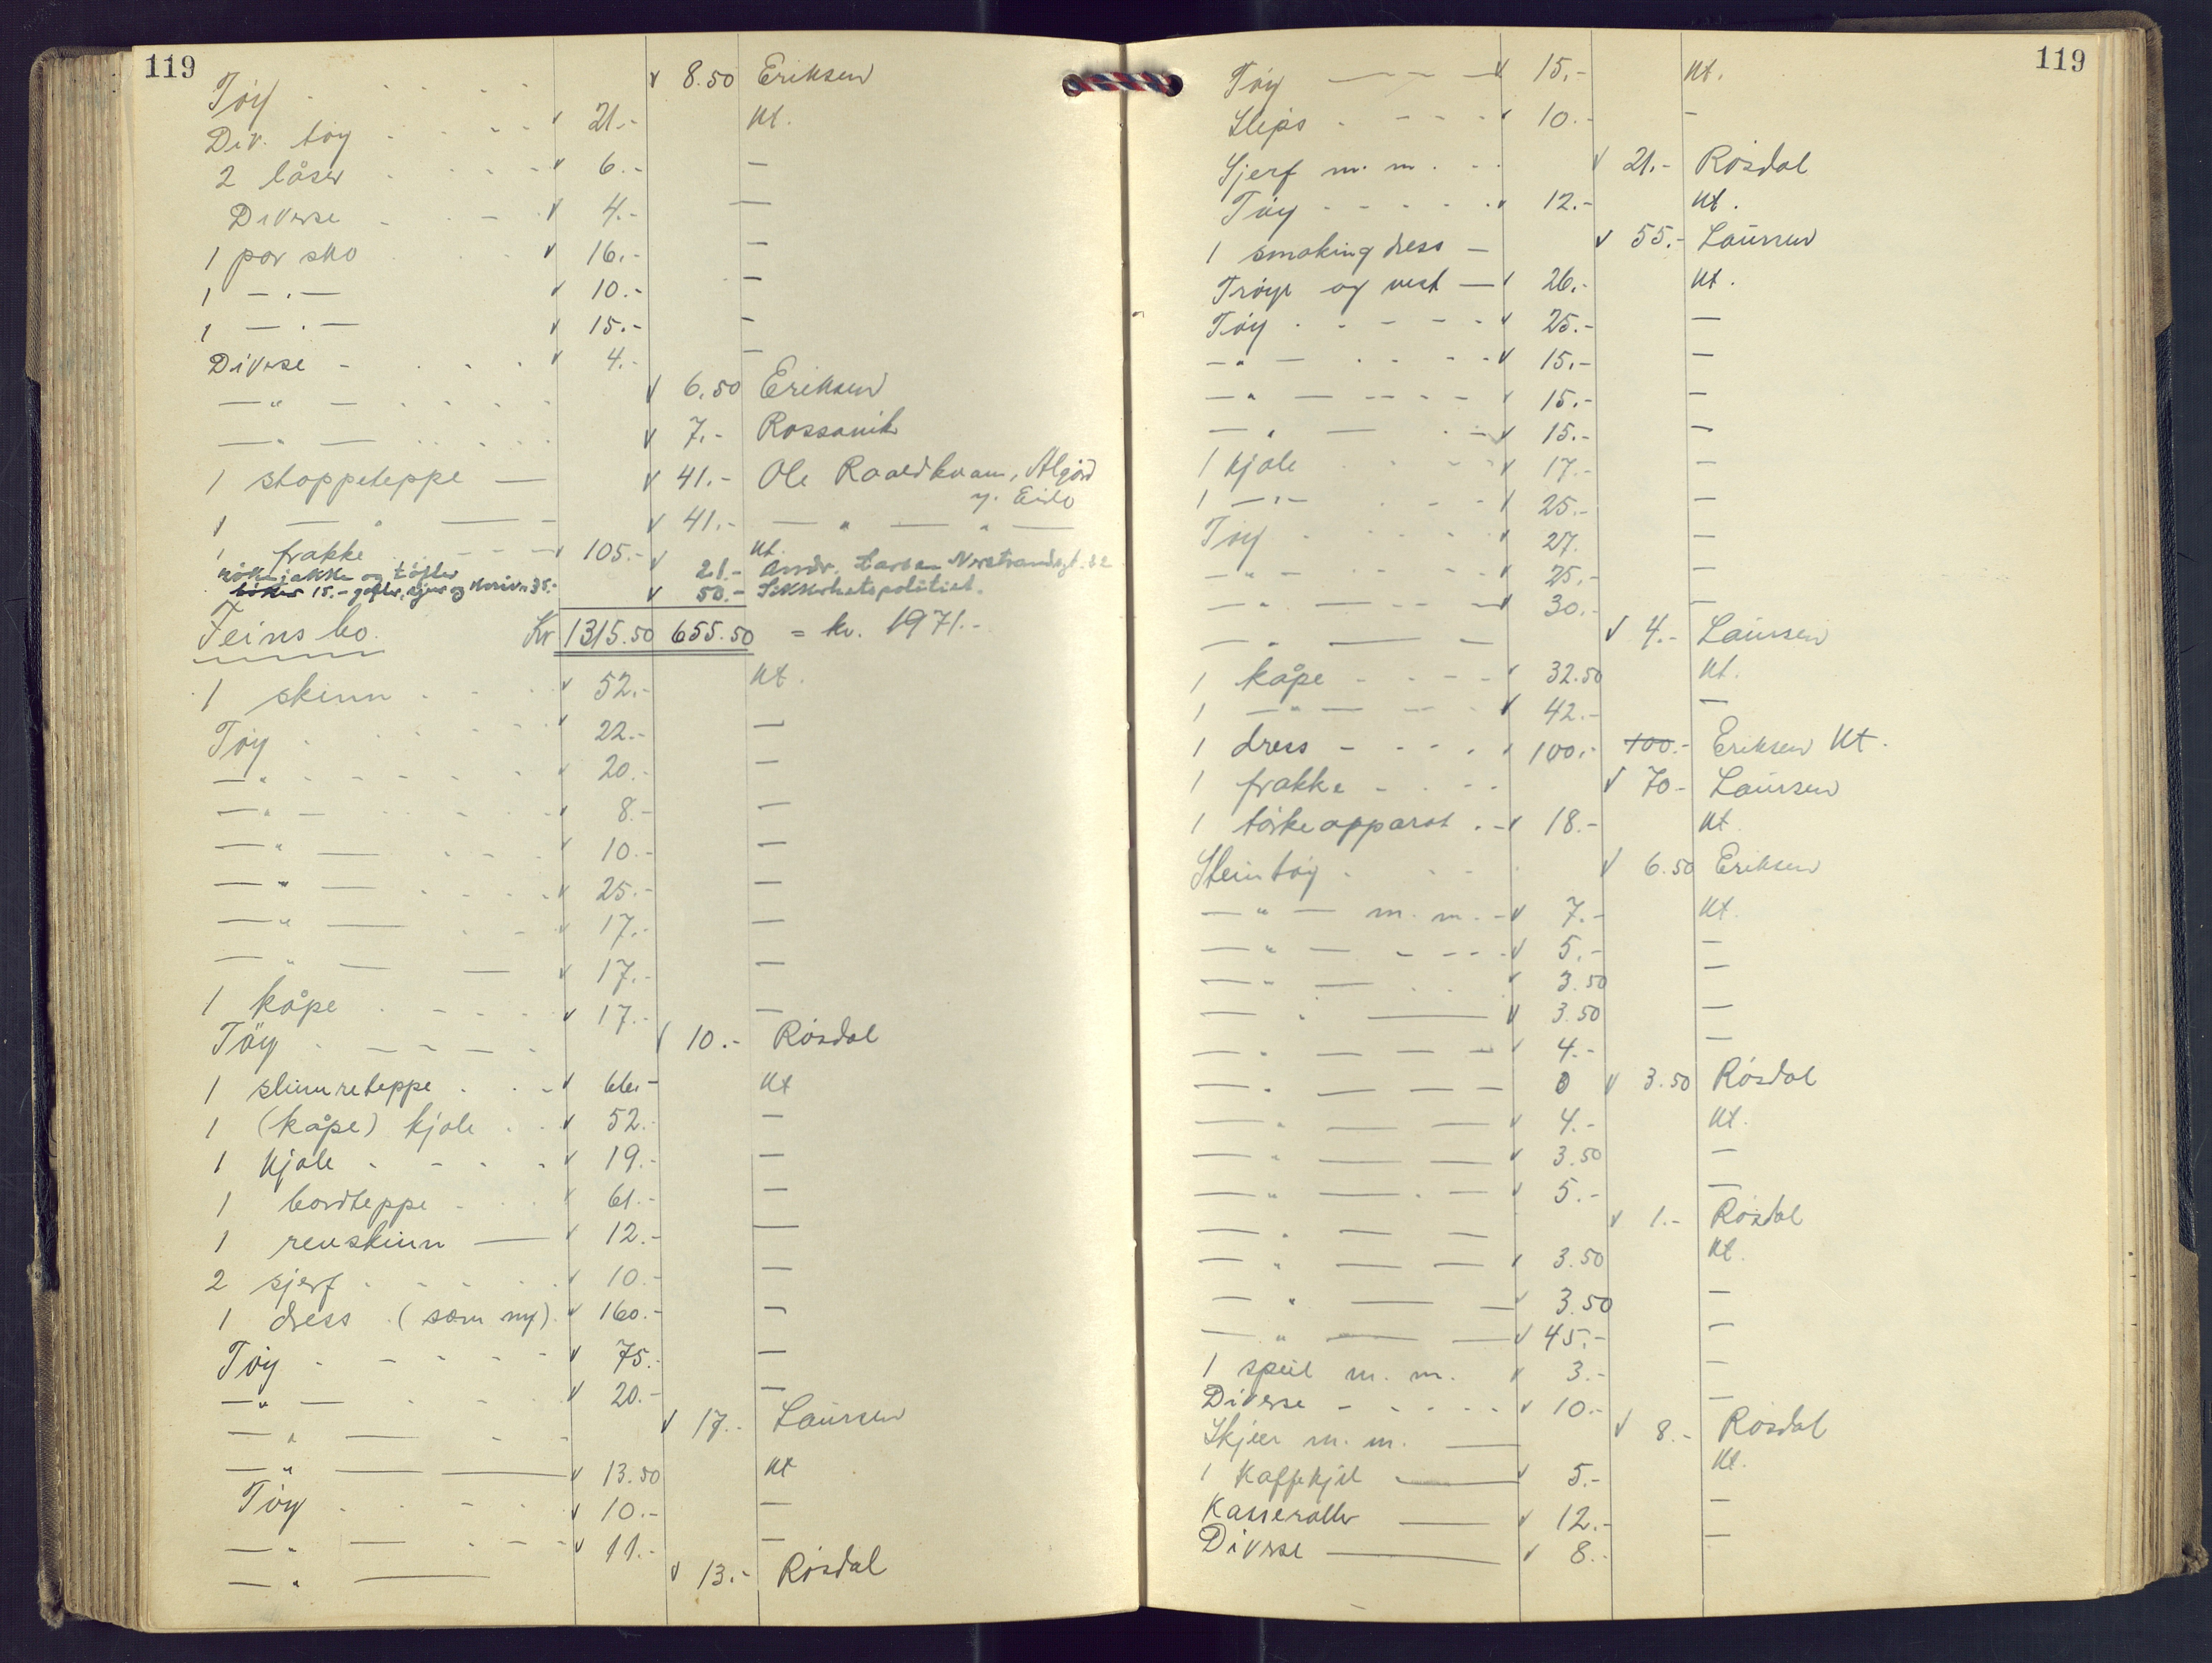 119
Tøy . . . . . . v 8.50 Eriksen
Div. tøy . . . . v 21.- Kt.
2 låser . . . . v 6.- —
Diverse - . - . v 4.- —
1 par sko . . . v 16.- —
1 — . — v 10.- —
1 — . — v 15.- —
Diverse - . . . v 4.- —
— " — . . . . v 6.50 Eriksen
— " — . . . . v 7.- Rossavik
1 stoppeteppe — v 41.- Ole Raaedkvam, Ålgård
y. Eide
1 — " — - v 41.- — " — " —
1 frakke - - - v 105.- Kt.
røkejakke og tøfler v 21.- Andr. Larsen Verstrandsgt. 82
bøker 15.- gafler, skjeer og kniver 35.- v 50.- Sikkerhetspolitiet.
Feins bo. Kr 1315.50 655.50 = kr. 1971.-
1 skinn . . . v 52.- Kt.
Tøy . . . . . v 22.- —
— " - - - - v 20.- —
— " — . . . v 8.- —
— " — . - - v 10.- —
— " — . . . v 25.- —
— " — - - v 17.- —
— " — — v 17.- —
1 kåpe . - - - v 17.- —
Tøy . — - — - v 10.- Røsdal
1 slumreteppe . . - v 66.- Kt
1 (kåpe) kjole . . v 52.- —
1 kjole . - . . v 19.- —
1 bordteppe - . v 61.- —
1 revskinn — v 12.- —
2 sjerf . - - . . v 10.- —
1 dress . (som ny). v 160.- —
Tøy - - - - - v 75.- —
— " — . - . v 20.- —
— " — - - v 17.- Laursen
— " — — v 13.50 Kt
Tøy . . - . v 10.- —
— " — . - - v 11.- —
— " — v 13.- Røsdal
119
Tøy — - - — v 15.- Kt.
Slips . - - - v 10.- —
Sjerf m. m. . - . v 21.- Røsdal
Tøy - - - - - v 12.- Kt.
1 smoking dress — v 55.- Laursen
Trøye og vest — v 26.- Kt.
Tøy . - - - - v 25.- —
— " — . . - - v 15.- —
— " — - - - - v 15.- —
— " — . - v 15.- —
1 kjole . . - - v 17.- —
1 — " — . - v 25.- —
Tøy - . . . . v 27. —
— " — . . . v 25.- —
— " — - - — v 30.- —
— " — — v 4.- Laursen
1 kåpe - . - - v 32.50 Kt.
1 — " — - - v 42.- —
1 dress - - - . v 100.- 100.- Eriksen Kt.
1 frakke - . - - v 70.- Laursen
1 tørkeapparat . - v 18.- Kt.
Steintøy . . - . v 6.50 Eriksen
— " — m. m. - v 7.- Kt.
— " — - - - - v 5.- —
— " — . . v 3.50 —
— " — v 3.50 —
— " — — — v 4.- —
— " — — — 0 v 3.50 Røsdal
— " — — v 4.- Kt.
— " — — v 3.50 —
— " — . — v 5.- —
— " — — v 1.- Røsdal
— " — — v 3.50 Kt.
— " — — v 3.50 —
— " — — v 45.- —
1 speil m. m. v 3.- —
Diverse - . . . . v 10.- —
Skjeer m. m. — v 8.- Røsdal
1 Kaffekjel — v 5.- Kt.
Kasseroller — v 12.- —
Diverse — v 8.- —